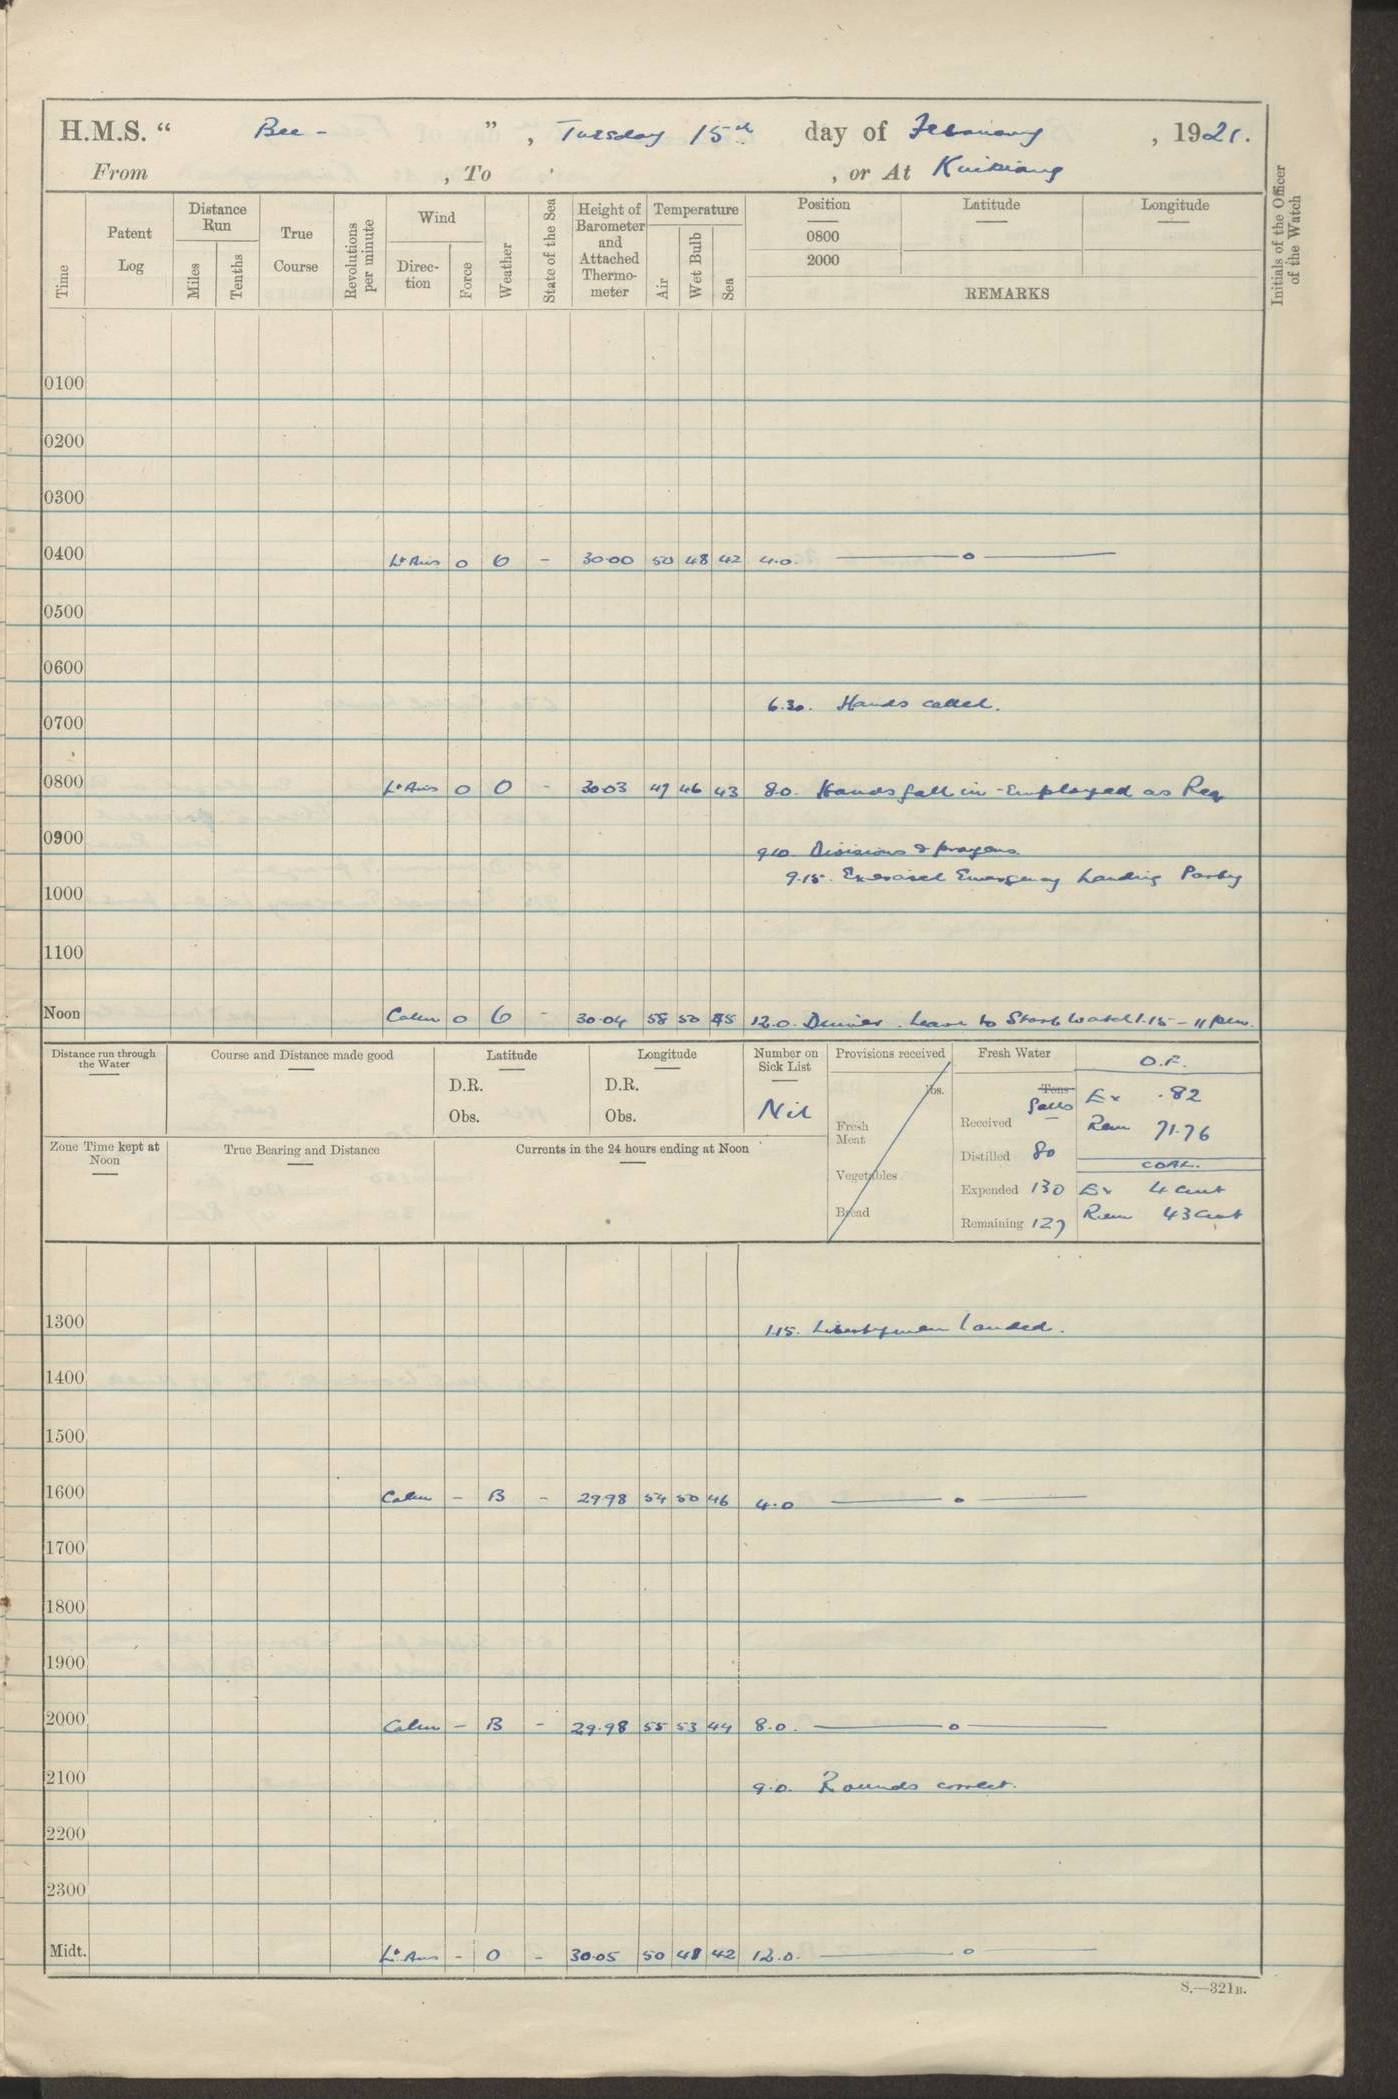 H.M.S. “ Bee - ” , Tuesday 15th day of February , 1921.
From , To , or At Kiukiang
Time
Patent Log
Distance Run
Miles
Tenths
True Course
Revolutions per minute
Wind
Direc- tion
Force
Weather
State of the Sea
Height of Barometer and Attached Thermo- meter
Temperature
Air
Wet Bulb
Sea
Position
0800
2000
Latitude
Longitude
REMARKS
Initials of the Officer of the Watch
0100
0200
0300
0400 Lt Airs 0 O - 30.00 50 48 42 4.0. —— o ——
0500
0600
6.30. Hands called.
0700
0800 Lt Airs 0 O - 30.03 47 46 43 8.0. Hands fall in - Employed as Req
0900
9.10. Divisions & prayers.
9.15. Exercised Emergency Landing Party
1000
1100
Noon Calm 0 O - 30.04 58 50 45 12.0. Dinner. Leave to Starb Watch 1.15 - 11 p.m.
Distance run through the Water
Course and Distance made good
Latitude
D.R.
Obs.
Longitude
D.R.
Obs.
Number on Sick List
Nil
Provisions received
lbs.
Fresh Meat
Vegetables
Bread
Fresh Water
Tons
galls
Received
Distilled 80
Expended 130
Remaining 127
O.F.
Ex .82
Rem 71.76
COAL.
Ex 4 cwt
Rem 43 cwt
Zone Time kept at Noon
True Bearing and Distance
Currents in the 24 hours ending at Noon
1300
1.15. Libertymen landed.
1400
1500
1600 Calm - B - 29.98 54 50 46 4.0 —— o ——
1700
1800
1900
2000 Calm - B - 29.98 55 53 44 8.0. —— o ——
2100
9.0. Rounds correct.
2200
2300
Midt. Lt Airs - O - 30.05 50 48 42 12.0. —— o ——
S.—321B.